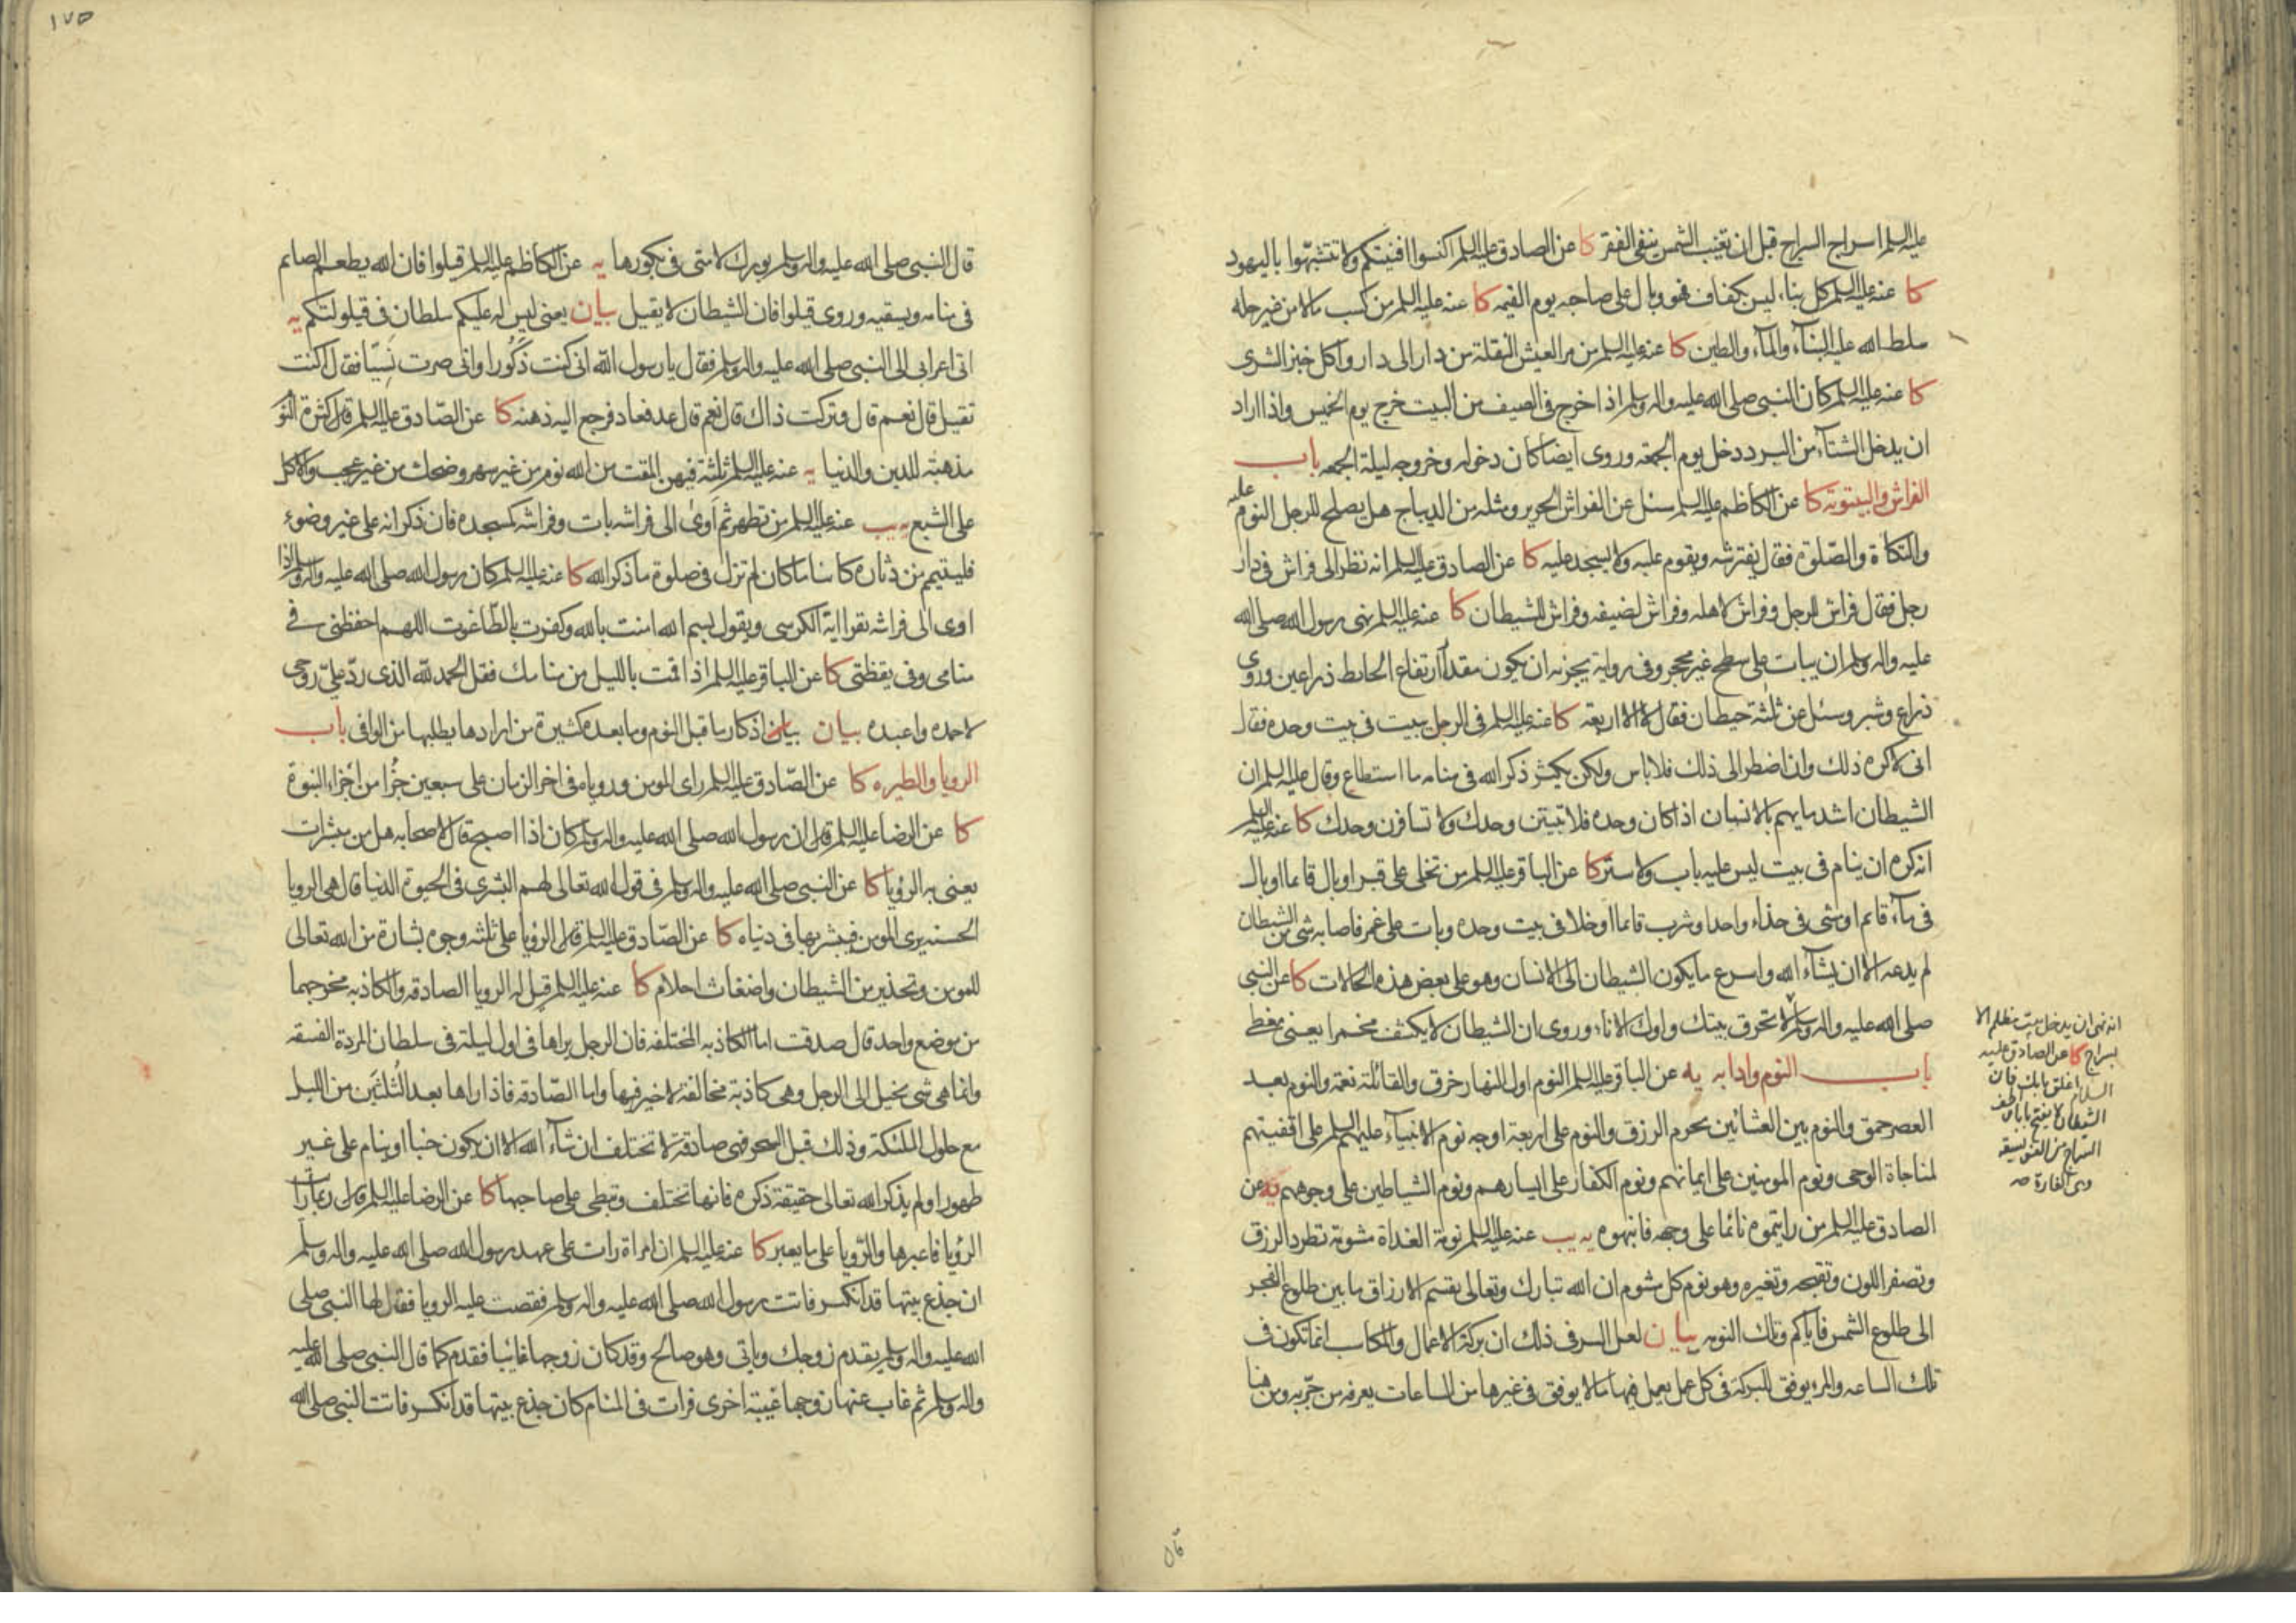 عليه السلم اسراج السراج قبل ان تغيب الشمس ينفى الفقر كا عن الصادق عليه السلم اكنسوا افنيتكم ولا تتشبهوا باليهود
كا عنه عليه السلم كل بناء ليس بكفاف فهو وبال على صاحبه يوم القيمه كا عنه عليه السلم من كسب مالا من غير حله
سلط الله عليه البناء والماء والطين كا عنه عليه السلم من مر العيش النقلة من دار الى دار واكل خبز الشرى
كا عنه عليه السلم كان النبى صلى الله عليه واله وسلم اذا خرج فى الصيف من البيت خرج يوم الخميس واذا اراد
ان يدخل الشتاء من البرد دخل يوم الجمعة وروى ايضا كان دخوله وخروجه ليلة الجمعه باب
الفراش والبيتوته كا عن الكاظم عليه السلم سئل عن الفراش الحرير ومثله من الديباج هل يصلح للرجل النوم عليه
والتكاة والصلوة فقال يفترشه ويقوم عليه ولا يسجد عليه كا عن الصادق عليه السلم انه نظر الى فراش فى دار
رجل فقال فراش للرجل وفراش لاهله وفراش لضيفه وفراش للشيطان كا عنه عليه السلم نهى رسول الله صلى الله
عليه واله وسلم ان يبات على سطح غير محجر وفى رواية يجزيه ان يكون مقدار ارتفاع الحائط ذراعين وروى
ذراع وشبر وسئل عن ثلثة حيطان فقال لا الا اربعة كا عنه عليه السلم فى الرجل يبيت فى بيت وحده فقال
انى لاكره ذلك وان اضطر الى ذلك فلا باس ولكن يكثر ذكر الله فى منامه ما استطاع وقال عليه السلم ان
الشيطان اشد ما يهم بالانسان اذا كان وحده فلا تبيتن وحدك ولا تسافرن وحدك كا عنه عليه السلم
انه كره ان ينام فى بيت ليس عليه باب ولا ستر كا عن الباقر عليه السلم من تخلى على قبر او بال قائما او بال
فى ماء قائم او مشى فى حذاء واحد او شرب قائما او خلا فى بيت وحده وبات على غمر فاصابه شى من الشيطان
لم يدعه الا ان يشاء الله واسرع ما يكون الشيطان الى الانسان وهو على بعض هذه الحالات كا عن النبى
صلى الله عليه واله وسلم لا تحرق بيتك واوك الاناء وروى ان الشيطان لا يكشف مخمرا يعنى مغطى
باب النوم وادابه يه عن الباقر عليه السلم النوم اول النهار خرق والقائلة نعمة والنوم بعد
العصر حمق والنوم بين العشائين يحرم الرزق والنوم على اربعة اوجه نوم الانبياء عليهم السلم على اقفيتهم
لمناجاة الوحى ونوم المومنين على ايمانهم ونوم الكفار على ايسارهم ونوم الشياطين على وجوههم يه عن
الصادق عليه السلم من رايتموه نائما على وجهه فانبهوه يه يب عنه عليه السلم نومة الغداة مشومة تطرد الرزق
وتصفر اللون وتقبحه وتغيره وهو نوم كل مشوم ان الله تبارك وتعالى يقسم الارزاق ما بين طلوع الفجر
الى طلوع الشمس فاياكم وتلك النومه بيان لعل السر فى ذلك ان بركة الاعمال والمكاسب انما تكون فى
تلك الساعه والمرء يوفق للبركة فى كل عمل يعمل فيها ما لا يوفق فى غيرها من الساعات يعرفه من جربه ومن هنا
انه نهى ان يدخل بيت مظلم الا
بسراج كا عن الصادق عليه
السلام اغلق بابك فان
الشيطان لا يفتح بابا واطف
السراج من الفويسقه
وهى الفارة صح
١٧٥
قال النبى صلى الله عليه واله وسلم بورك لامتى فى بكورها يه عن الكاظم عليه السلم قيلوا فان الله يطعم الصائم
فى منامه ويسقيه وروى قيلوا فان الشيطان لا يقيل بيان يعنى ليس له عليكم سلطان فى قيلولتكم يه
اتى اعرابى الى النبى صلى الله عليه واله وسلم فقال يا رسول الله انى كنت ذكورا وانى صرت نسيا فقال اكنت
تقيل قال نعم قال وتركت ذاك قال نعم قال عد فعاد فرجع اليه ذهنه كا عن الصادق عليه السلم قال كثرة النو
مذهبة للدين والدنيا يه عنه عليه السلم ثلثة فيهن المقت من الله نوم من غير سهر وضحك من غير عجب والاكل
على الشبع يه يب عنه عليه السلم من تطهر ثم اوى الى فراشه بات وفراشه كمسجده فان ذكر انه على غير وضوء
فليتيمم من دثاره كائنا ما كان لم تزل فى صلوة ما ذكر الله كا عنه عليه السلم كان رسول الله صلى الله عليه واله وسلم اذا
اوى الى فراشه يقرا اية الكرسى ويقول بسم الله امنت بالله وكفرت بالطاغوت اللهم احفظنى فى
منامى وفى يقظتى كا عن الباقر عليه السلم اذا قمت بالليل من منامك فقل الحمد لله الذى رد على روحى
لاحمده واعبده بيان بيان اذكار ما قبل النوم وما بعده كثيرة من ارادها يطلبها من الوافى باب
الرويا والطيره كا عن الصادق عليه السلم راى المومن ورؤياه فى اخر الزمان على سبعين جزءا من اجزاء النبوة
كا عن الرضا عليه السلم قال ان رسول الله صلى الله عليه واله وسلم كان اذا اصبح قال لاصحابه هل من مبشرات
يعنى به الرؤيا كا عن النبى صلى الله عليه واله وسلم فى قول الله تعالى لهم البشرى فى الحيوة الدنيا قال هى الرويا
الحسنه يرى المومن فيبشر بها فى دنياه كا عن الصادق عليه السلم قال الرؤيا على ثلثه وجوه بشارة من الله تعالى
للمومن وتحذير من الشيطان واضغاث احلام كا عنه عليه السلم قيل له الرويا الصادقه والكاذبه مخرجهما
من موضع واحد قال صدقت اما الكاذبه المختلفه فان الرجل يراها فى اول ليلة فى سلطان المردة الفسقه
وانما هى شى يخيل الى الرجل وهى كاذبة مخالفة لا خير فيها واما الصادقه فاذا راها بعد الثلثين من الليل
مع حلول الملئكة وذلك قبل السحر فهى صادقة لا تختلف ان شاء الله الا ان يكون جنبا او ينام على غير
طهور او لم يذكر الله تعالى حقيقة ذكره فانها تختلف وتبطى على صاحبها كا عن الرضا عليه السلم قال ربما رايت
الرؤيا فاعبرها والرؤيا على ما يعبر كا عنه عليه السلم ان امراة رات على عهد رسول الله صلى الله عليه واله وسلم
ان جذع بيتها قد انكسر فاتت رسول الله صلى الله عليه واله وسلم فقصت عليه الرويا فقال لها النبى صلى
الله عليه واله وسلم يقدم زوجك وياتى وهو صالح وقد كان زوجها غايبا فقدم كما قال النبى صلى الله عليه
واله وسلم ثم غاب عنها زوجها غيبة اخرى فرات فى المنام كان جذع بيتها قد انكسر فاتت النبى صلى الله